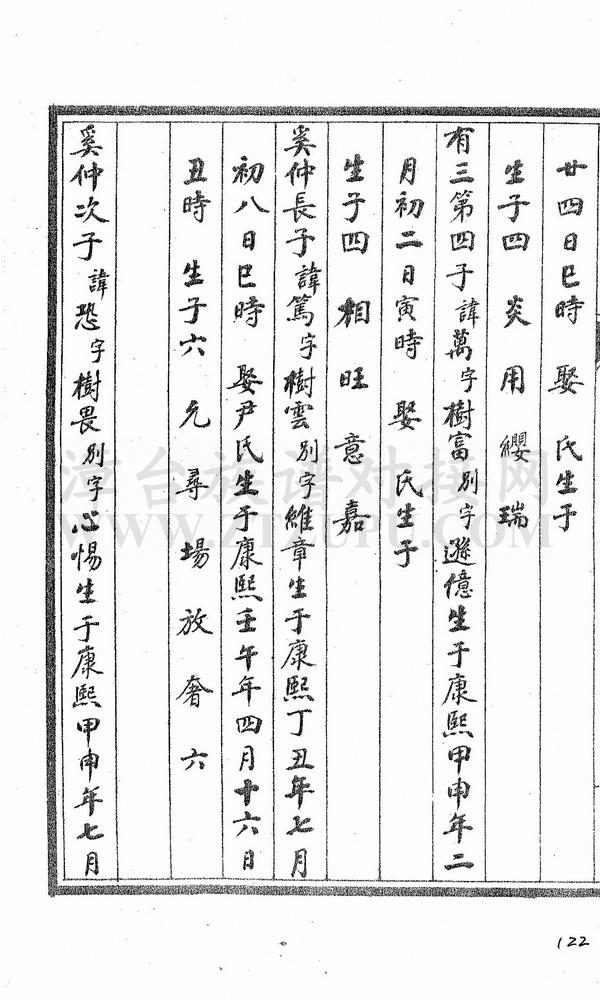 廿四日巳時 娶 氏生于
生子四 炎用纓瑞
有三第四子諱萬字樹富別字遜億生于康熙甲申年二
月初二日寅時 娶 氏生于
生子四 相旺意嘉
奚仲長子諱篤字樹雲別字維章生于康熙丁丑年七月
初八日巳時 娶尹氏生于康熙壬午年四月十六日
丑時 生子六 元尋場放奢六
奚仲次子諱恐字樹畏別字心惕生于康熙甲申年七月
漳台族谱对接网
WWW.ZTZUPU.COM
122